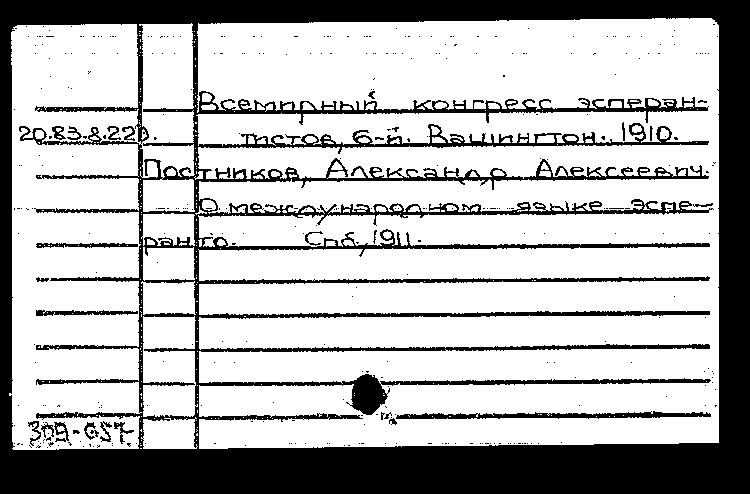 Всемирный конгресс эсперан-
20.83.8.220. тистов, 6-й. Вашингтон. 1910.
Постников, Александр Алексеевич.
О международном языке эспе-
ранто. Спб., 1911.